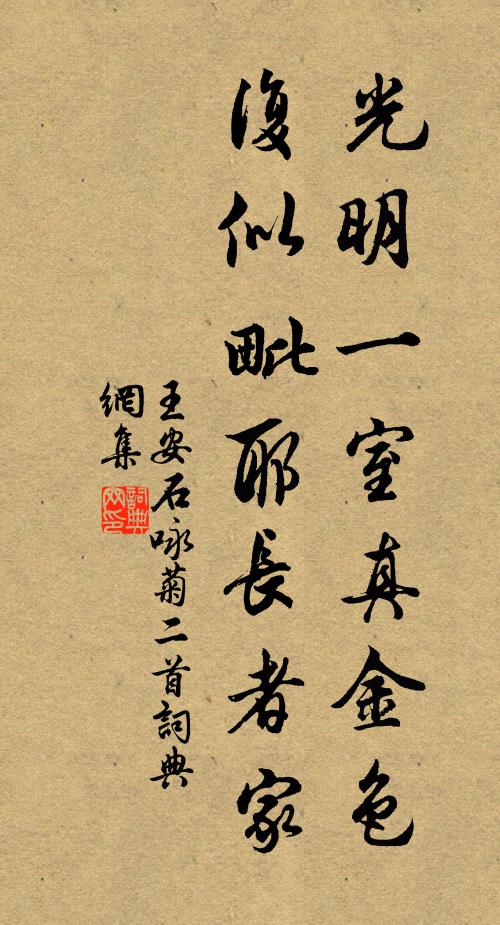 光明一室真金色
復似毗耶長者家
王安石咏菊二首詞典
網集
詞典
网印